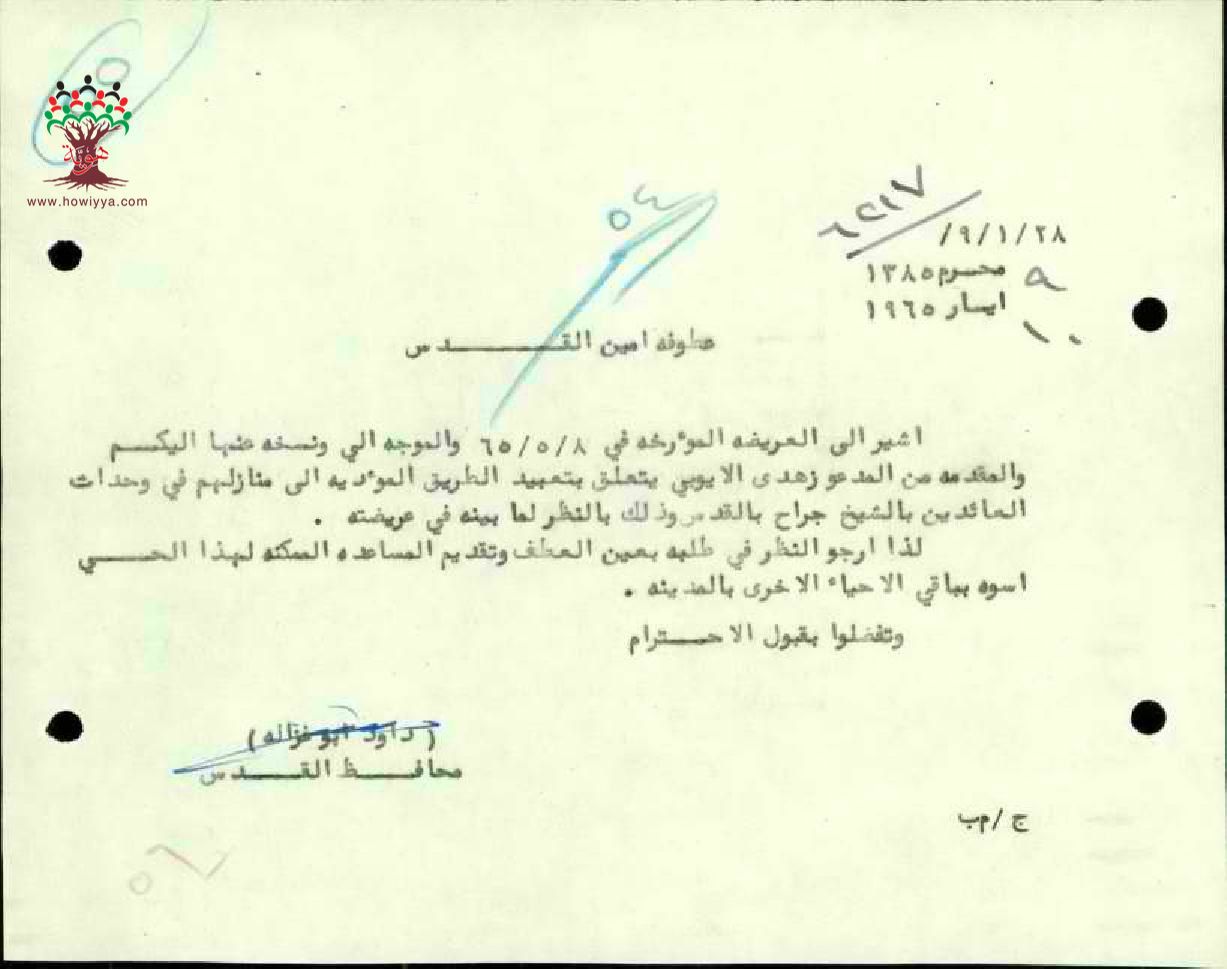 هوية
www.howiyya.com
٥٤
٦٢١٧
٢٨/١/٩/
٩ محرم ١٣٨٥
١٠ ايار ١٩٦٥
عطوفه امين القـــــــدس
اشير الى العريضه المؤرخه في ٦٥/٥/٨ والموجه الي ونسخه عنها اليكـم
والمقدمه من المدعو زهدى الايوبي يتعلق بتعبيد الطريق المؤديه الى منازلهم في وحدات
العائدين بالشيخ جراح بالقدس وذلك بالنظر لما بينه في عريضته .
لذا ارجو النظر في طلبه بعين العطف وتقديم المساعده الممكنه لهذا الحـــي
اسوه بباقي الاحياء الاخرى بالمدينه .
وتفضلوا بقبول الاحــترام
( داود ابو غزاله )
محافــــظ القــــدس
ج /م ب